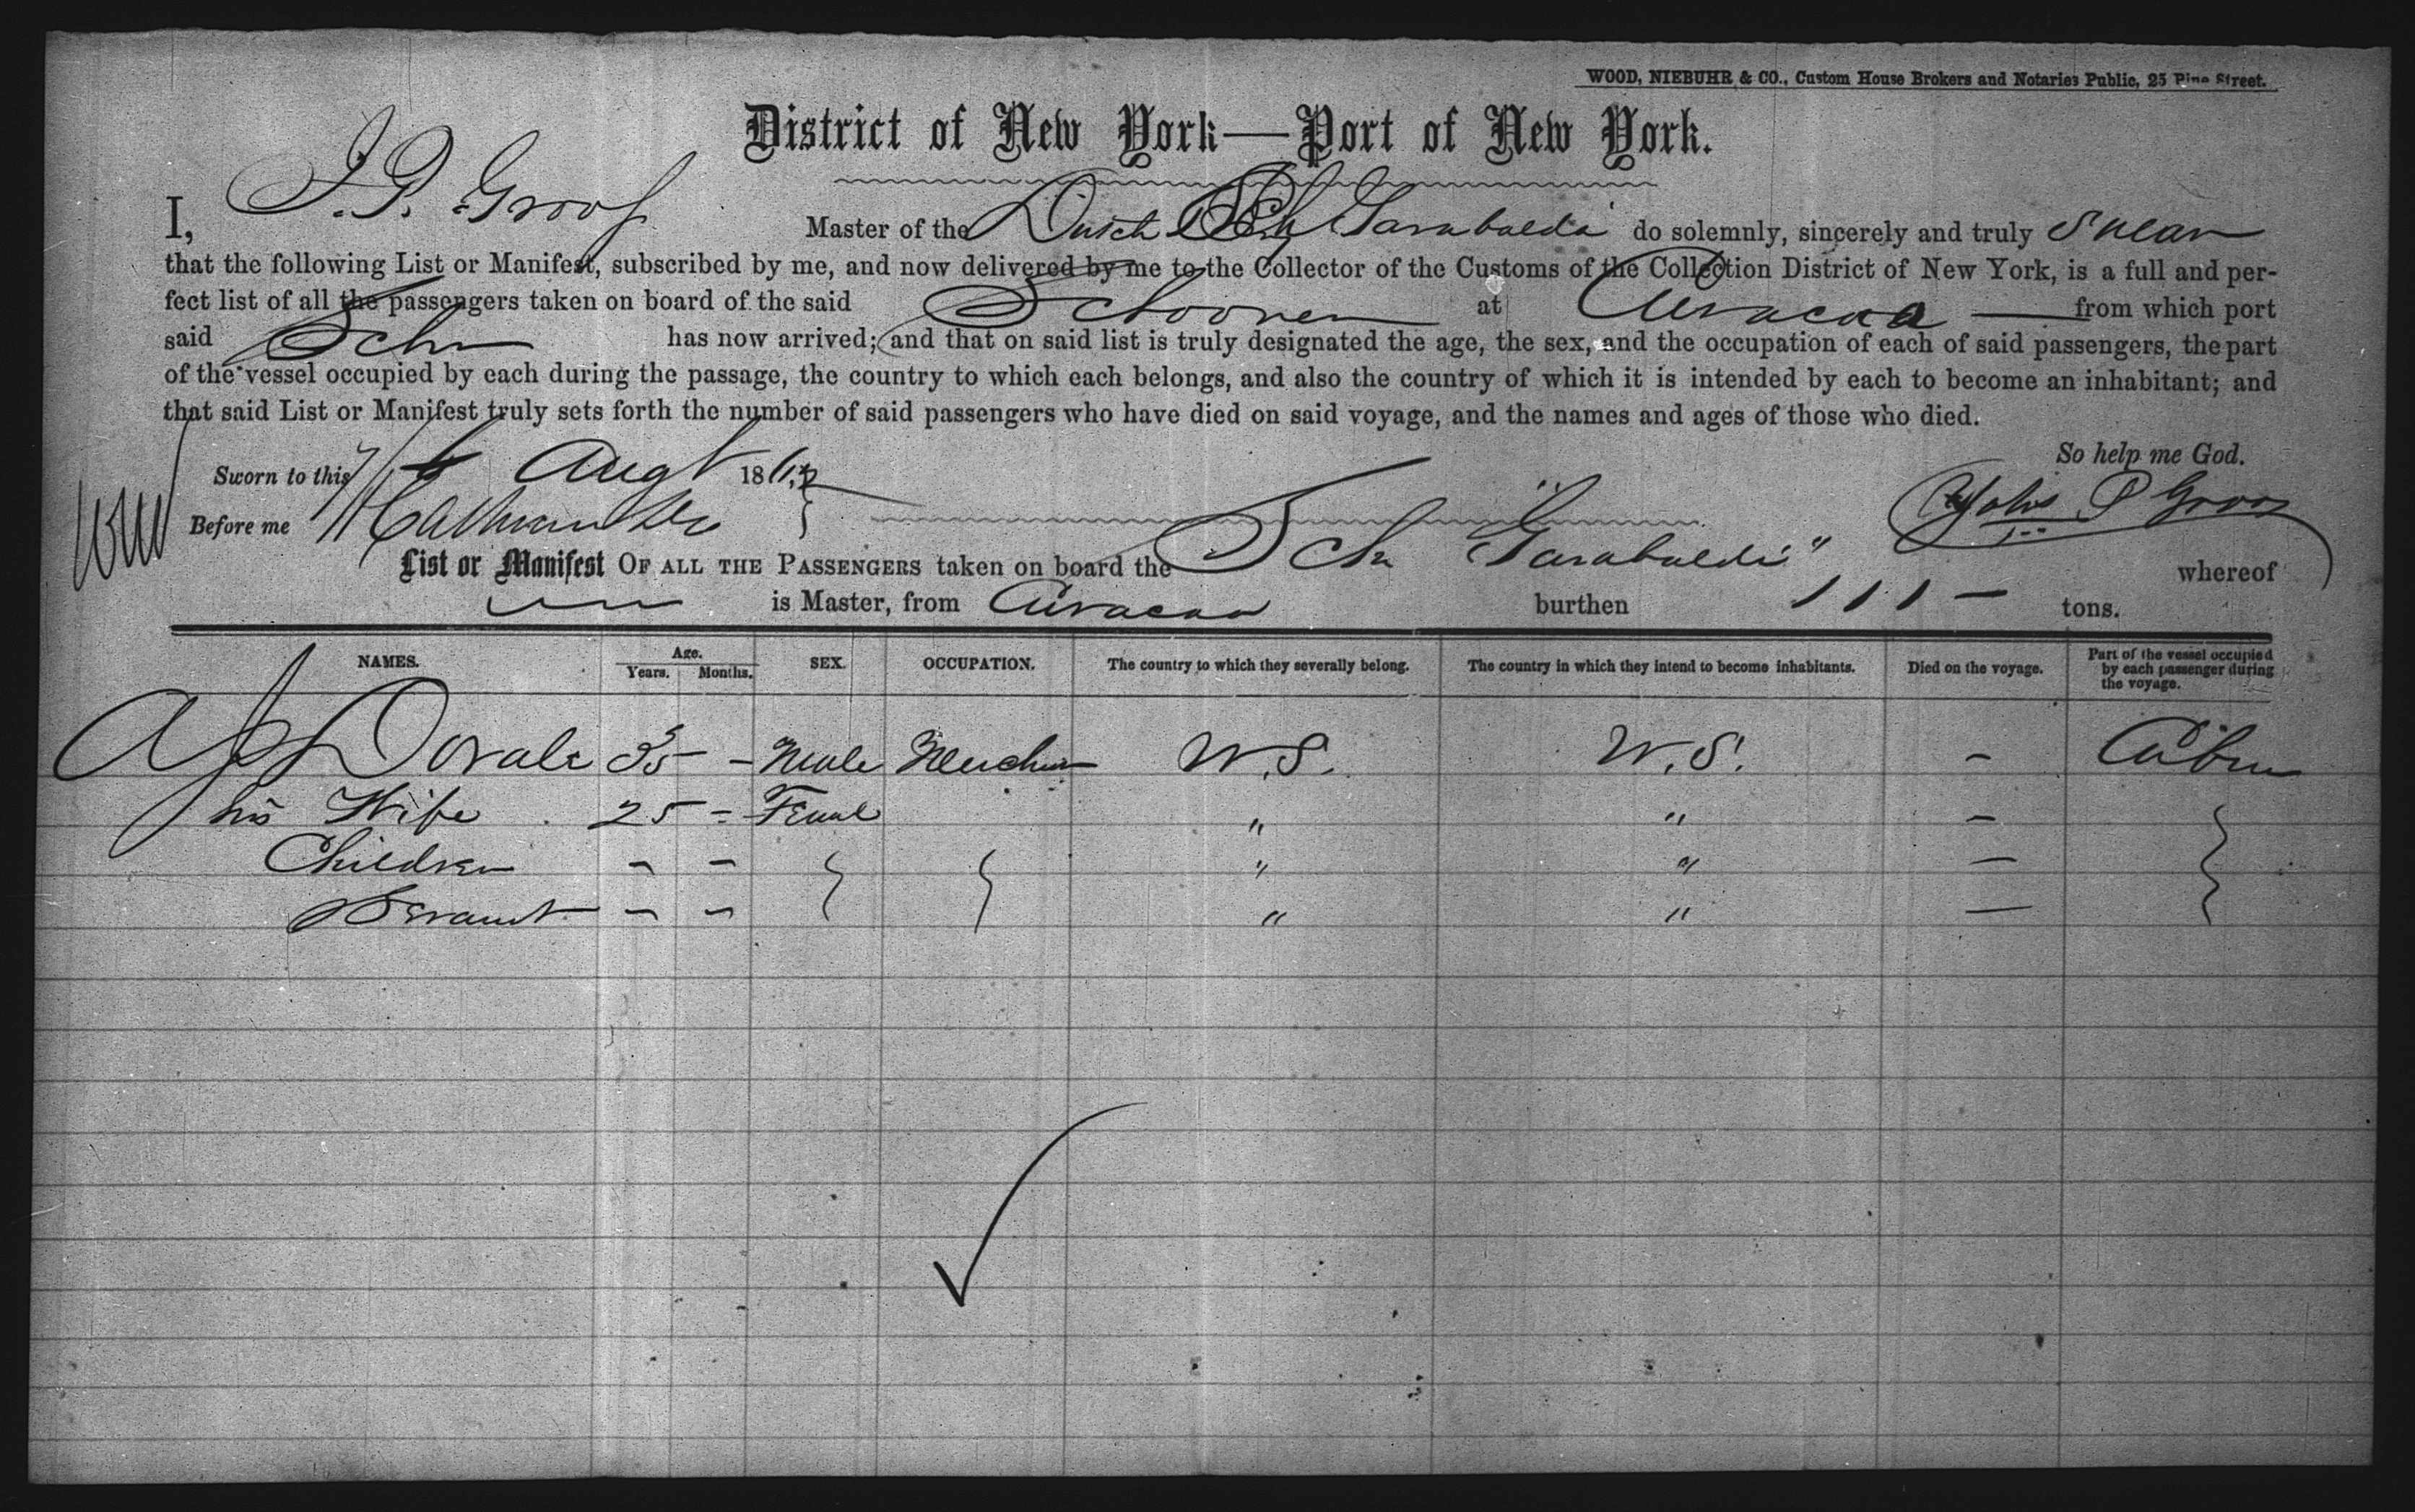 WOOD, NIEBUHR & CO., Custom House Brokers and Notaries Public, 25 Pine Street.
District of New York—Port of New York.
I, J. P. Groos Master of the Dutch Sch Garabaldi do solemnly, sincerely and truly Swear
that the following List or Manifest, subscribed by me, and now delivered by me to the Collector of the Customs of the Collection District of New York, is a full and per-
fect list of all the passengers taken on board of the said Schooner at Curacoa from which port
said Schr has now arrived; and that on said list is truly designated the age, the sex, and the occupation of each of said passengers, the part
of the vessel occupied by each during the passage, the country to which each belongs, and also the country of which it is intended by each to become an inhabitant; and
that said List or Manifest truly sets forth the number of said passengers who have died on said voyage, and the names and ages of those who died.
So help me God.
Sworn to this Augt 186
Before me
John P Groos
List or Manifest OF ALL THE PASSENGERS taken on board the Sch "Garabaldi" whereof
is Master, from Curacoa burthen 111 – tons.
NAMES. Age. Years. Months. SEX. OCCUPATION. The country to which they severally belong. The country in which they intend to become inhabitants. Died on the voyage. Part of the vessel occupied by each passenger during the voyage.
A J Dovale 35 – Male Merchan W.S. W.S. – Cabin
his Wife 25 – Femal " " –
Children – – " " –
Servant – – " " –